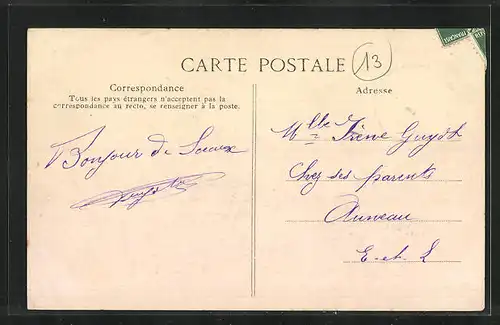 CARTE POSTALE
13
Correspondance
Tous les pays étrangers n'acceptent pas la
correspondance au recto, se renseigner à la poste.
Adresse
Bonjour de Sceaux
Mlle Irène Guyot
Chez ses parents
Auneau
E-et-L